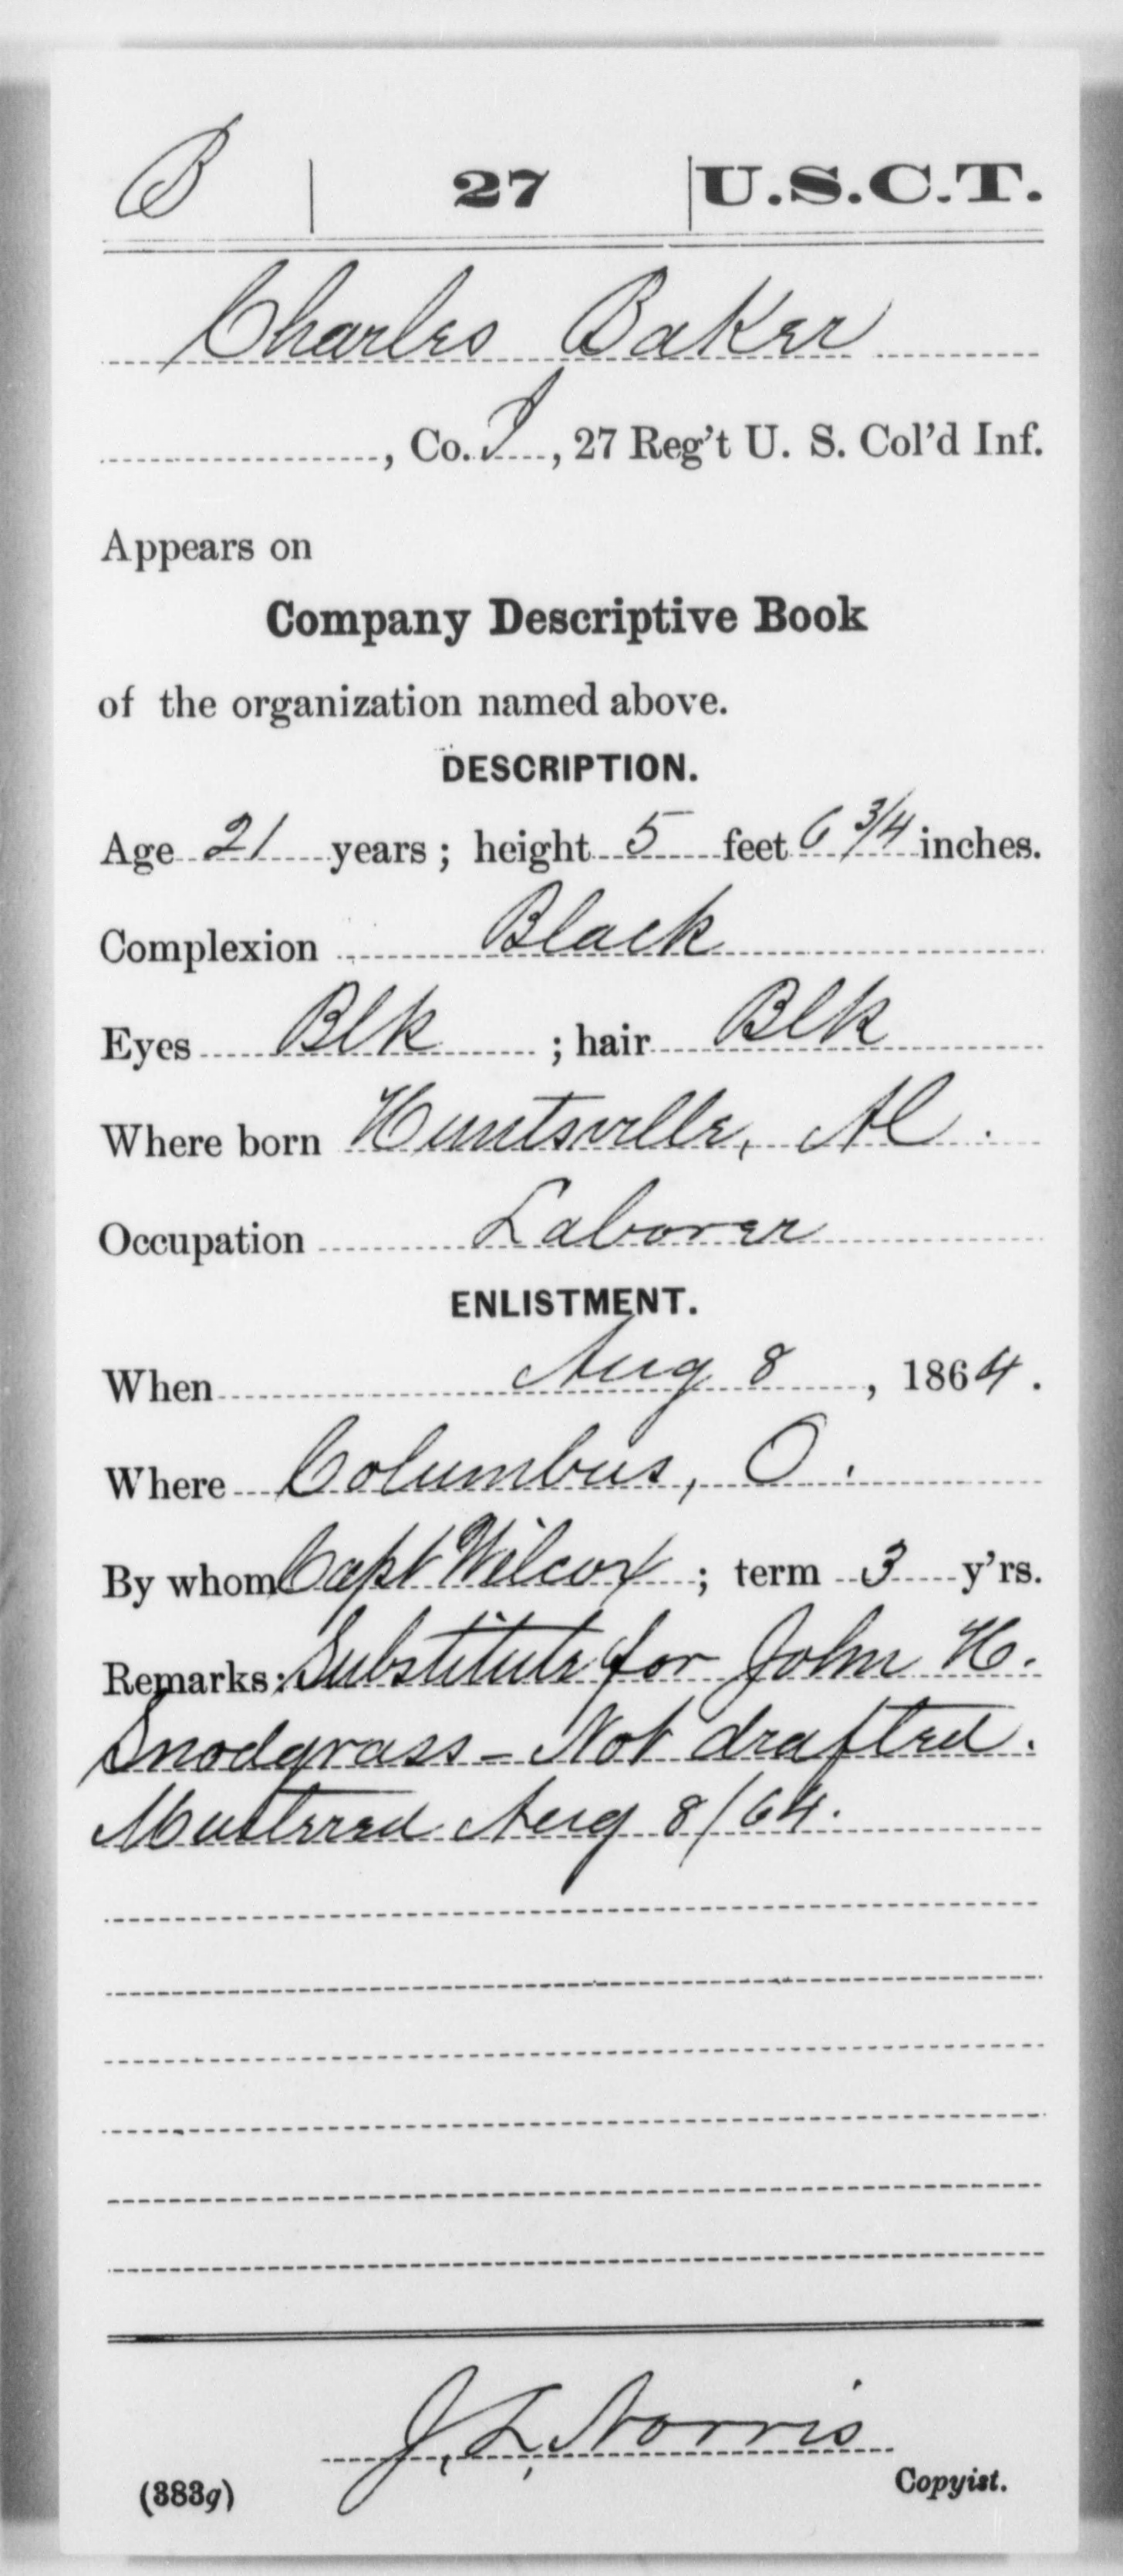 B | 27 | U.S.C.T.
Charles Baker
, Co. I, 27 Reg't U. S. Col'd Inf.
Appears on
Company Descriptive Book
of the organization named above.
DESCRIPTION.
Age 21 years; height 5 feet 6 3/4 inches.
Complexion Black
Eyes Blk ; hair Blk
Where born Huntsville, Al.
Occupation Laborer
ENLISTMENT.
When Aug 8, 1864.
Where Columbus, O.
By whom Capt Wilcox; term 3 y'rs.
Remarks: Substitute for John H.
Snodgrass - Not drafted.
Mustered Aug 8/64.
J. L. Norris
(383g) Copyist.